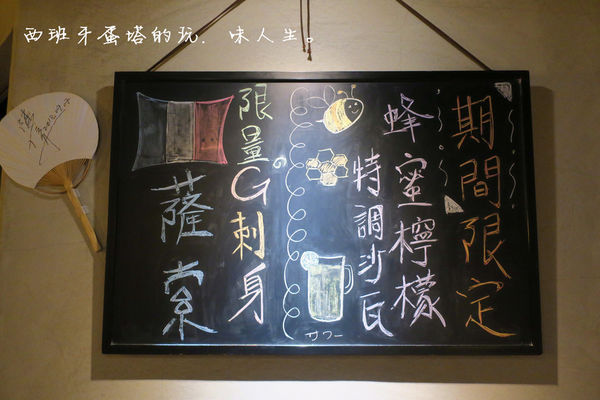 西班牙蛋塔的玩．味人生。
期間限定
蜂蜜檸檬
特調沙瓦
サワー
限量。G刺身
薩索